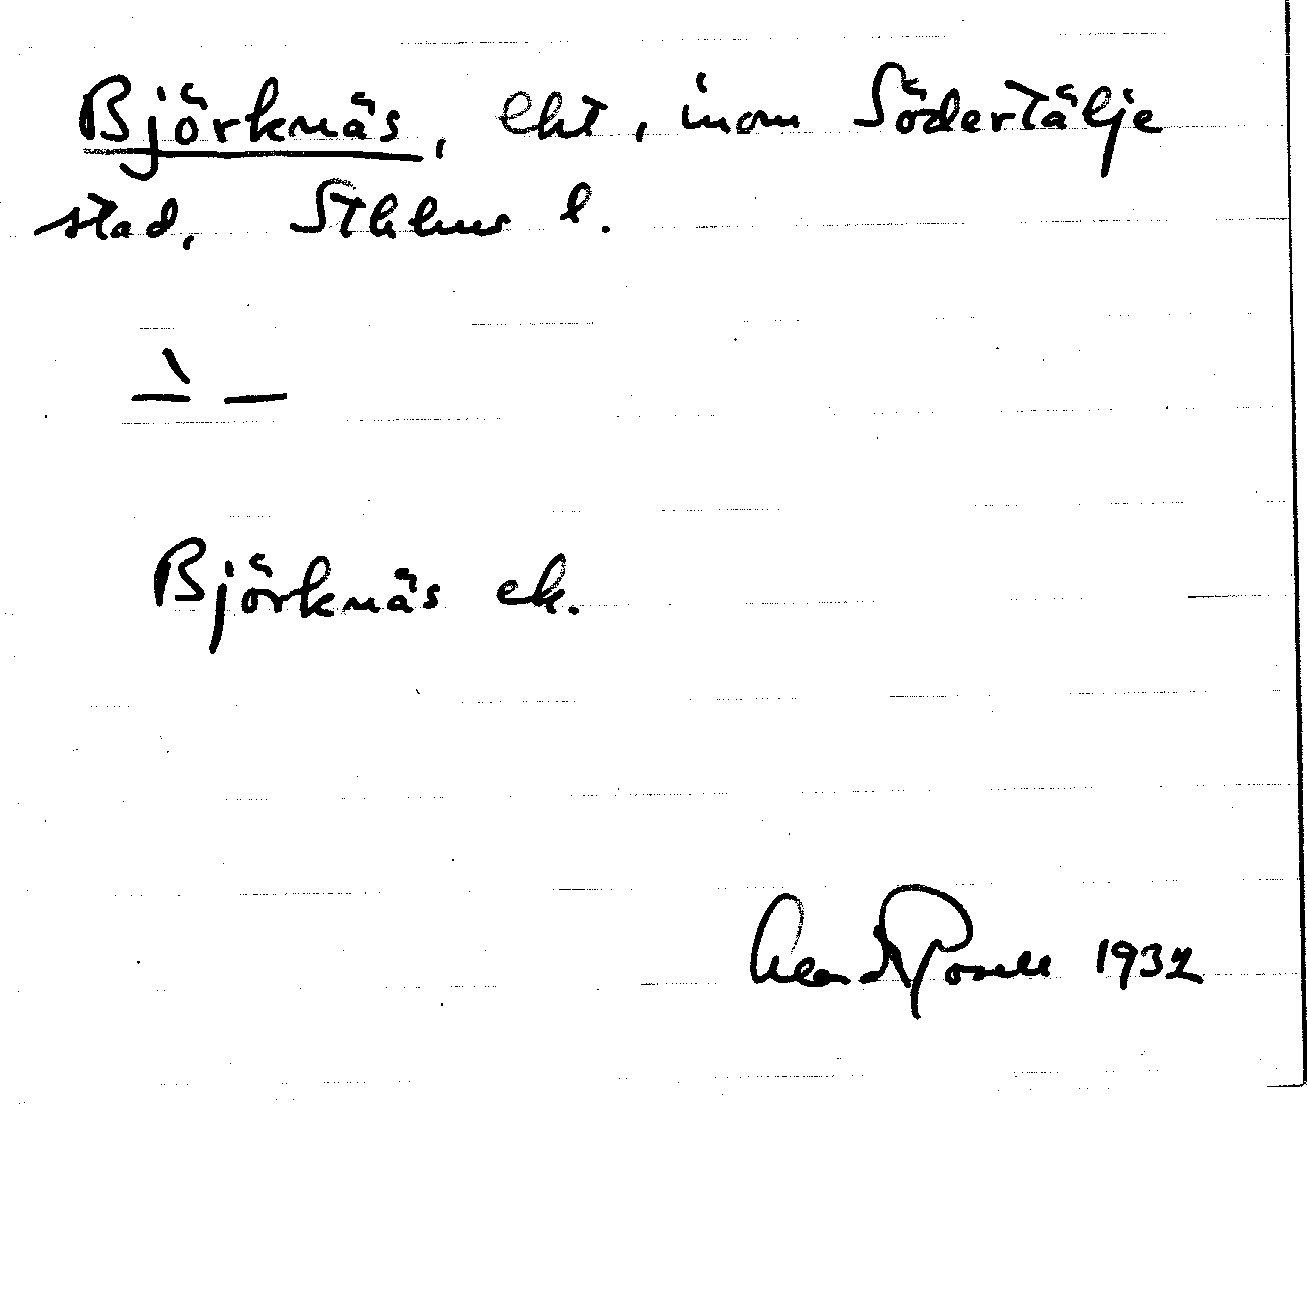 Björknäs, ekt, inom Södertälje
stad, Sthlms l.
Björknäs ek.
1932